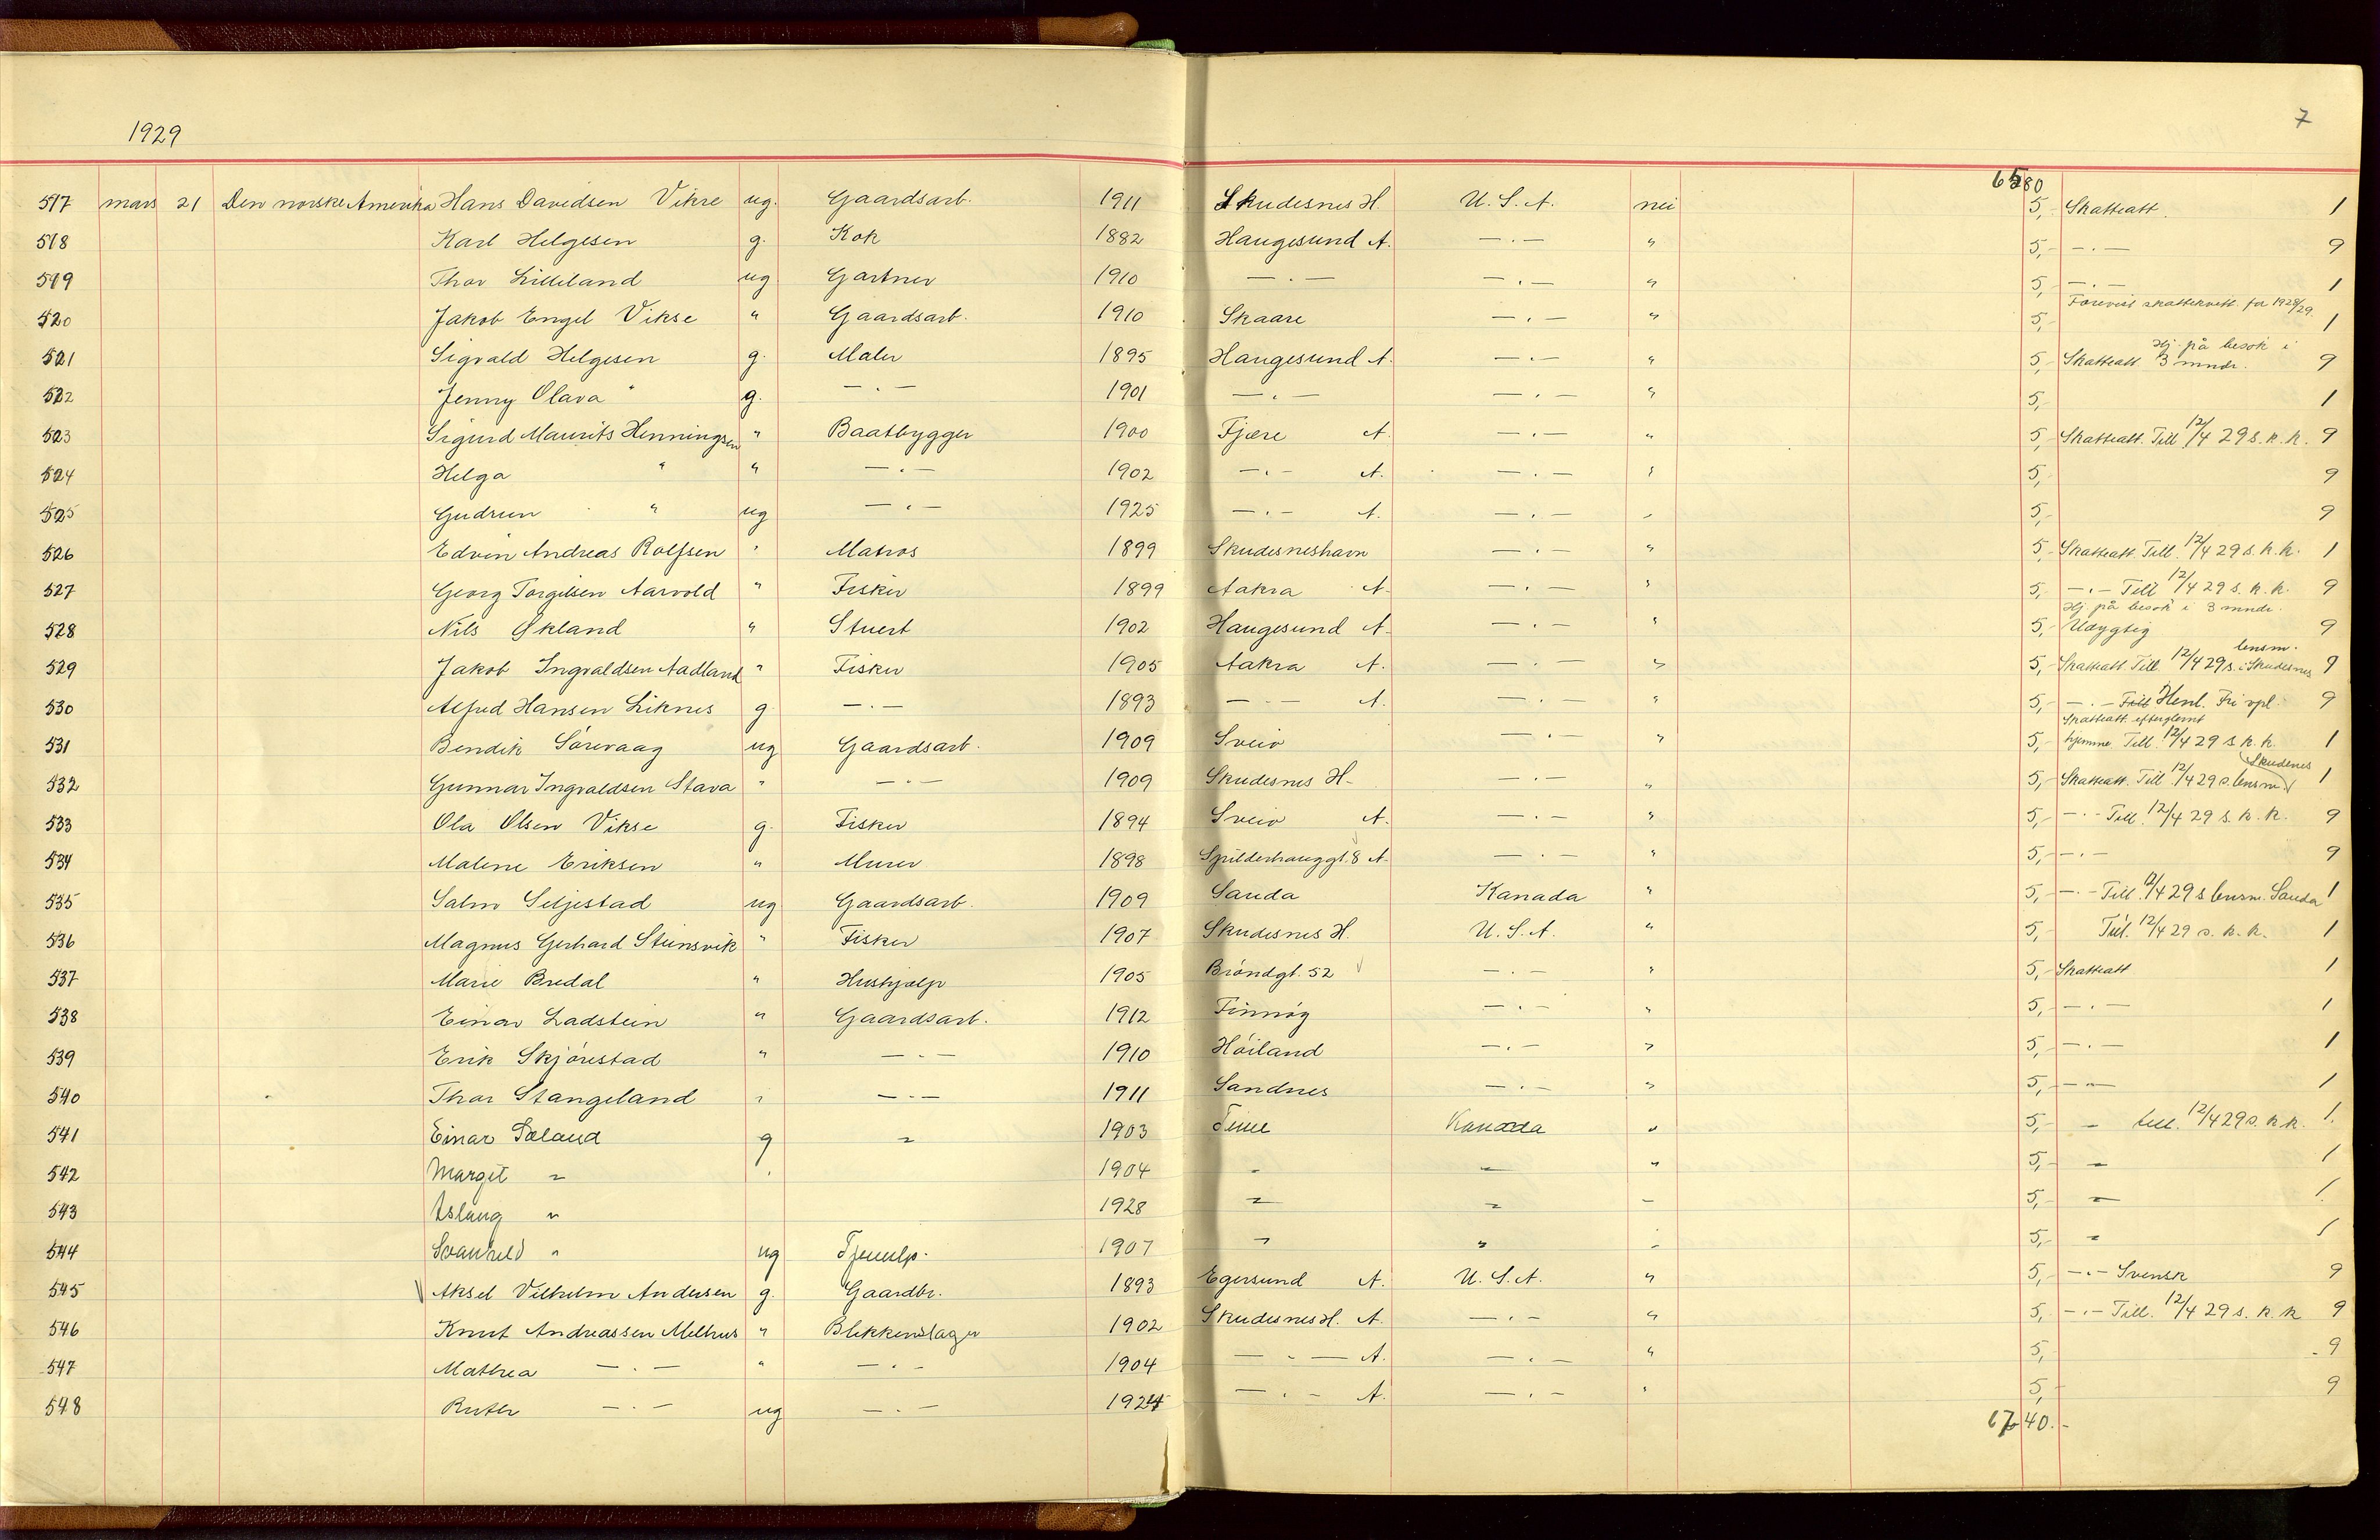 1929
7
6580
517 mars 21 Den norske Amerika Hans Davidsen Vikre ug. Gaardsarb. 1911 Skudesnes H. U.S.A. nei 5,- Skatteatt. 1
518 Karl Helgesen g. Kok 1882 Haugesund A. —.— " 5,- —.— 9
519 Thor Lilleland ug Gartner 1910 —.— —.— " 5,- —.— 1
520 Jakob Engel Vikse " Gaardsarb. 1910 Skaare —.— " 5,- Forevist skattekvitt. for 1928/29. 1
521 Sigvald Helgesen g. Maler 1895 Haugesund A. —.— " 5,- Skatteatt. Hj. på besøk i 3 mndr. 9
522 Jenny Olava " g. —.— 1901 —.— —.— " 5,- 1
523 Sigurd Maurits Henningsen " Baatbygger 1900 Fjære A. —.— " 5,- Skatteatt. Till. 12/4 29 s. k. k. 9
524 Helga " " —.— 1902 —.— A. —.— " 5,- 9
525 Gudrun " ug —.— 1925 —.— A. —.— " 5,- 9
526 Edvin Andreas Rolfsen " Matros 1899 Skudesneshavn —.— " 5,- Skatteatt. Till. 12/4 29 s. k. k. 1
527 Georg Torgilsen Aarvold " Fisker 1899 Aakra A. —.— " 5,- —.— Till 12/4 29 s. k. k. 9
528 Nils Økland " Stuert 1902 Haugesund A. —.— " 5,- Hj. på besøk i 3 mndr. Udygtig 9
529 Jakob Ingvaldsen Aadland " Fisker 1905 Aakra A. —.— " 5,- Skatteatt. Till. 12/4 29 s. lensm. i Skudesnes 9
530 Alfred Hansen Liknes g —.— 1893 —.— A. —.— " 5,- —.— Till Henl. Fri vpl. 9
531 Bendik Sørevaag ug Gaardsarb. 1909 Sveio —.— " 5,- Skatteatt. efterglemt hjemme Till. 12/4 29 s k. k. 1
532 Gunnar Ingvaldsen Stava " —.— 1909 Skudesnes H. —.— " 5,- Skatteatt. Till 12/4 29 s. lensm. Skudenes 1
533 Ola Olsen Vikse g. Fisker 1894 Sveio A. —.— " 5,- —.— Till. 12/4 29 s. k. k. 9
534 Malene Eriksen " Murer 1898 Spilderhauggt. 8 A. —.— " 5,- —.— 9
535 Salmo Seljestad ug Gaardsarb. 1909 Sauda Kanada " 5,- —.— Till. 12/4 29 s lensm. Sauda 1
536 Magnus Gerhard Steinsvik " Fisker 1907 Skudesnes H. U.S.A. " 5,- Till. 12/4 29 s. k. k. 1
537 Marie Bredal " Hushjælp 1905 Brøndgt. 52 —.— " 5,- Skatteatt 1
538 Einar Ladstein " Gaardsarb. 1912 Finnøy —.— " 5,- —.— 1
539 Erik Skjørestad " —.— 1910 Høiland —.— " 5,- —.— 1
540 Thor Stangeland " —.— 1911 Sandnes —.— " 5,- —.— 1
541 Einar Sæland g " 1903 Time Kanada " 5,- " till. 12/4 29 s. k k. 1.
542 Marget " " 1904 " " " 5,- " 1
543 Aslaug " 1928 " " " 5,- " 1.
544 Svanhild " ug Tjenelp. 1907 " " " 5,- " 1
545 Aksel Vilhelm Andersen g. Gaardbr. 1893 Egersund A. U.S.A. " 5,- —.— Svensk 9
546 Knut Andreassen Melhus " Blikkenslager 1902 Skudesnes H. A. —.— " 5,- —.— Till. 12/4 29 s. k. k 9
547 Mathea —.— " —.— 1904 —.— A. —.— " 5,- 9
548 Ruth —.— ug —.— 1924 —.— A. —.— " 5,- 9
6740.-